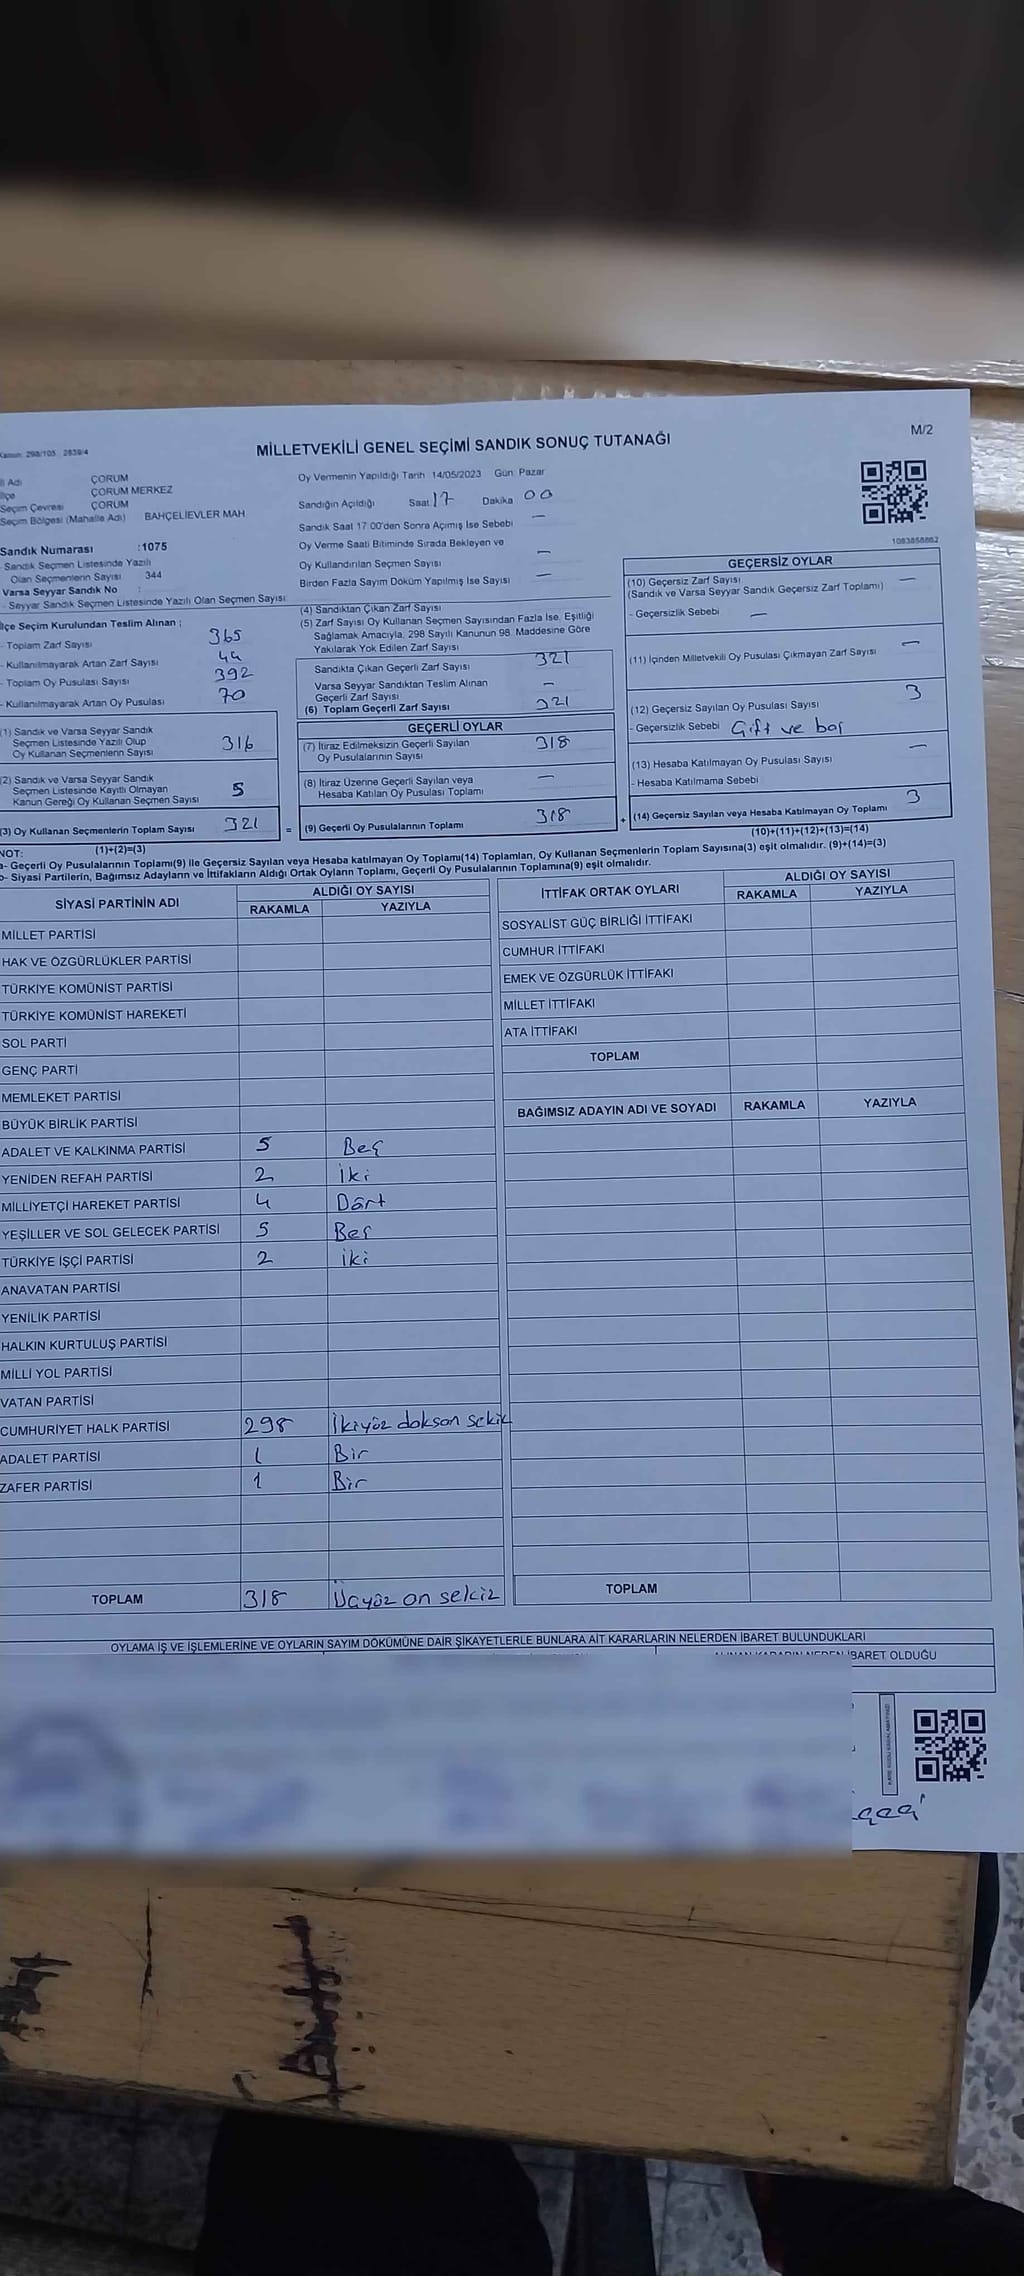 Kanun: 298/105 2839/4
MİLLETVEKİLİ GENEL SEÇİMİ SANDIK SONUÇ TUTANAĞI
M/2
İl Adı ÇORUM
İlçe ÇORUM MERKEZ
Seçim Çevresi ÇORUM
Seçim Bölgesi (Mahalle Adı) BAHÇELİEVLER MAH.
Sandık Numarası :1075
- Sandık Seçmen Listesinde Yazılı
Olan Seçmenlerin Sayısı 344
Varsa Seyyar Sandık No :
- Seyyar Sandık Seçmen Listesinde Yazılı Olan Seçmen Sayısı:
İlçe Seçim Kurulundan Teslim Alınan ;
- Toplam Zarf Sayısı 365
- Kullanılmayarak Artan Zarf Sayısı 44
- Toplam Oy Pusulası Sayısı 392
- Kullanılmayarak Artan Oy Pusulası 70
(1) Sandık ve Varsa Seyyar Sandık
Seçmen Listesinde Yazılı Olup
Oy Kullanan Seçmenlerin Sayısı 316
(2) Sandık ve Varsa Seyyar Sandık
Seçmen Listesinde Kayıtlı Olmayan
Kanun Gereği Oy Kullanan Seçmen Sayısı 5
(3) Oy Kullanan Seçmenlerin Toplam Sayısı 321 =
(1)+(2)=(3)
Oy Vermenin Yapıldığı Tarih 14/05/2023 Gün: Pazar
Sandığın Açıldığı Saat 17 Dakika 00
Sandık Saat 17:00'den Sonra Açılmış İse Sebebi —
Oy Verme Saati Bitiminde Sırada Bekleyen ve
Oy Kullandırılan Seçmen Sayısı —
Birden Fazla Sayım Döküm Yapılmış İse Sayısı —
(4) Sandıktan Çıkan Zarf Sayısı
(5) Zarf Sayısı Oy Kullanan Seçmen Sayısından Fazla İse, Eşitliği
Sağlamak Amacıyla, 298 Sayılı Kanunun 98. Maddesine Göre
Yakılarak Yok Edilen Zarf Sayısı
Sandıkta Çıkan Geçerli Zarf Sayısı 321
Varsa Seyyar Sandıktan Teslim Alınan
Geçerli Zarf Sayısı —
(6) Toplam Geçerli Zarf Sayısı 321
GEÇERLİ OYLAR
(7) İtiraz Edilmeksizin Geçerli Sayılan
Oy Pusulalarının Sayısı 318
(8) İtiraz Üzerine Geçerli Sayılan veya
Hesaba Katılan Oy Pusulası Toplamı —
(9) Geçerli Oy Pusulalarının Toplamı 318 +
1083858882
GEÇERSİZ OYLAR
(10) Geçersiz Zarf Sayısı —
(Sandık ve Varsa Seyyar Sandık Geçersiz Zarf Toplamı)
- Geçersizlik Sebebi —
(11) İçinden Milletvekili Oy Pusulası Çıkmayan Zarf Sayısı —
(12) Geçersiz Sayılan Oy Pusulası Sayısı 3
- Geçersizlik Sebebi Çift ve boş
(13) Hesaba Katılmayan Oy Pusulası Sayısı —
- Hesaba Katılmama Sebebi
(14) Geçersiz Sayılan veya Hesaba Katılmayan Oy Toplamı 3
(10)+(11)+(12)+(13)=(14)
NOT:
a- Geçerli Oy Pusulalarının Toplamı(9) ile Geçersiz Sayılan veya Hesaba katılmayan Oy Toplamı(14) Toplamları, Oy Kullanan Seçmenlerin Toplam Sayısına(3) eşit olmalıdır. (9)+(14)=(3)
b- Siyasi Partilerin, Bağımsız Adayların ve İttifakların Aldığı Ortak Oyların Toplamı, Geçerli Oy Pusulalarının Toplamına(9) eşit olmalıdır.
SİYASİ PARTİNİN ADI ALDIĞI OY SAYISI
RAKAMLA YAZIYLA
MİLLET PARTİSİ
HAK VE ÖZGÜRLÜKLER PARTİSİ
TÜRKİYE KOMÜNİST PARTİSİ
TÜRKİYE KOMÜNİST HAREKETİ
SOL PARTİ
GENÇ PARTİ
MEMLEKET PARTİSİ
BÜYÜK BİRLİK PARTİSİ
ADALET VE KALKINMA PARTİSİ 5 Beş
YENİDEN REFAH PARTİSİ 2 İki
MİLLİYETÇİ HAREKET PARTİSİ 4 Dört
YEŞİLLER VE SOL GELECEK PARTİSİ 5 Beş
TÜRKİYE İŞÇİ PARTİSİ 2 İki
ANAVATAN PARTİSİ
YENİLİK PARTİSİ
HALKIN KURTULUŞ PARTİSİ
MİLLİ YOL PARTİSİ
VATAN PARTİSİ
CUMHURİYET HALK PARTİSİ 298 İkiyüz doksan sekiz
ADALET PARTİSİ 1 Bir
ZAFER PARTİSİ 1 Bir
TOPLAM 318 Üçyüz on sekiz
İTTİFAK ORTAK OYLARI ALDIĞI OY SAYISI
RAKAMLA YAZIYLA
SOSYALİST GÜÇ BİRLİĞİ İTTİFAKI
CUMHUR İTTİFAKI
EMEK VE ÖZGÜRLÜK İTTİFAKI
MİLLET İTTİFAKI
ATA İTTİFAKI
TOPLAM
BAĞIMSIZ ADAYIN ADI VE SOYADI RAKAMLA YAZIYLA
TOPLAM
OYLAMA İŞ VE İŞLEMLERİNE VE OYLARIN SAYIM DÖKÜMÜNE DAİR ŞİKAYETLERLE BUNLARA AİT KARARLARIN NELERDEN İBARET BULUNDUKLARI
ALINAN KARARIN NEDEN İBARET OLDUĞU